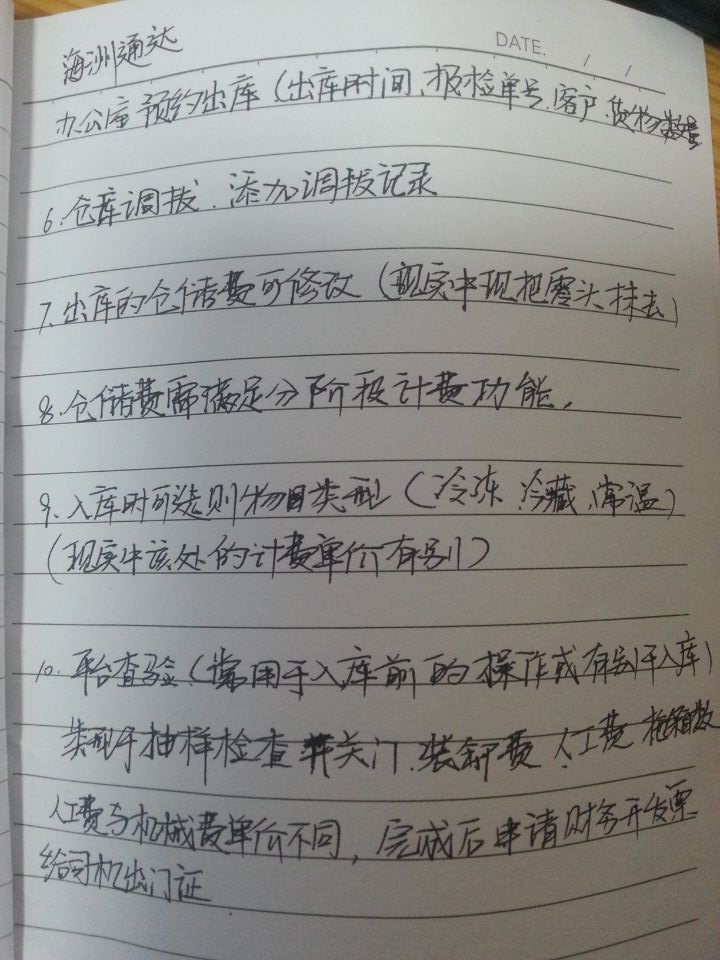 海洲通达
DATE. / /
办公室预约出库（出库时间、报检单号、客户、货物数量
6.仓库调拔、添加调拔记录
7.出库的仓储费可修改（现实中现把零头抹去）
8.仓储费需满足分阶段计费功能，
9.入库时可选则物目类型（冷冻、冷藏、常温）
（现实中该处的计费单价有别）
10.平台查验（常用于入库前的操作或有别于入库）
类型于抽样检查 开关门、装卸费、人工费
人工费与机械费单价不同，完成后申请财务开发票
给司机出门证